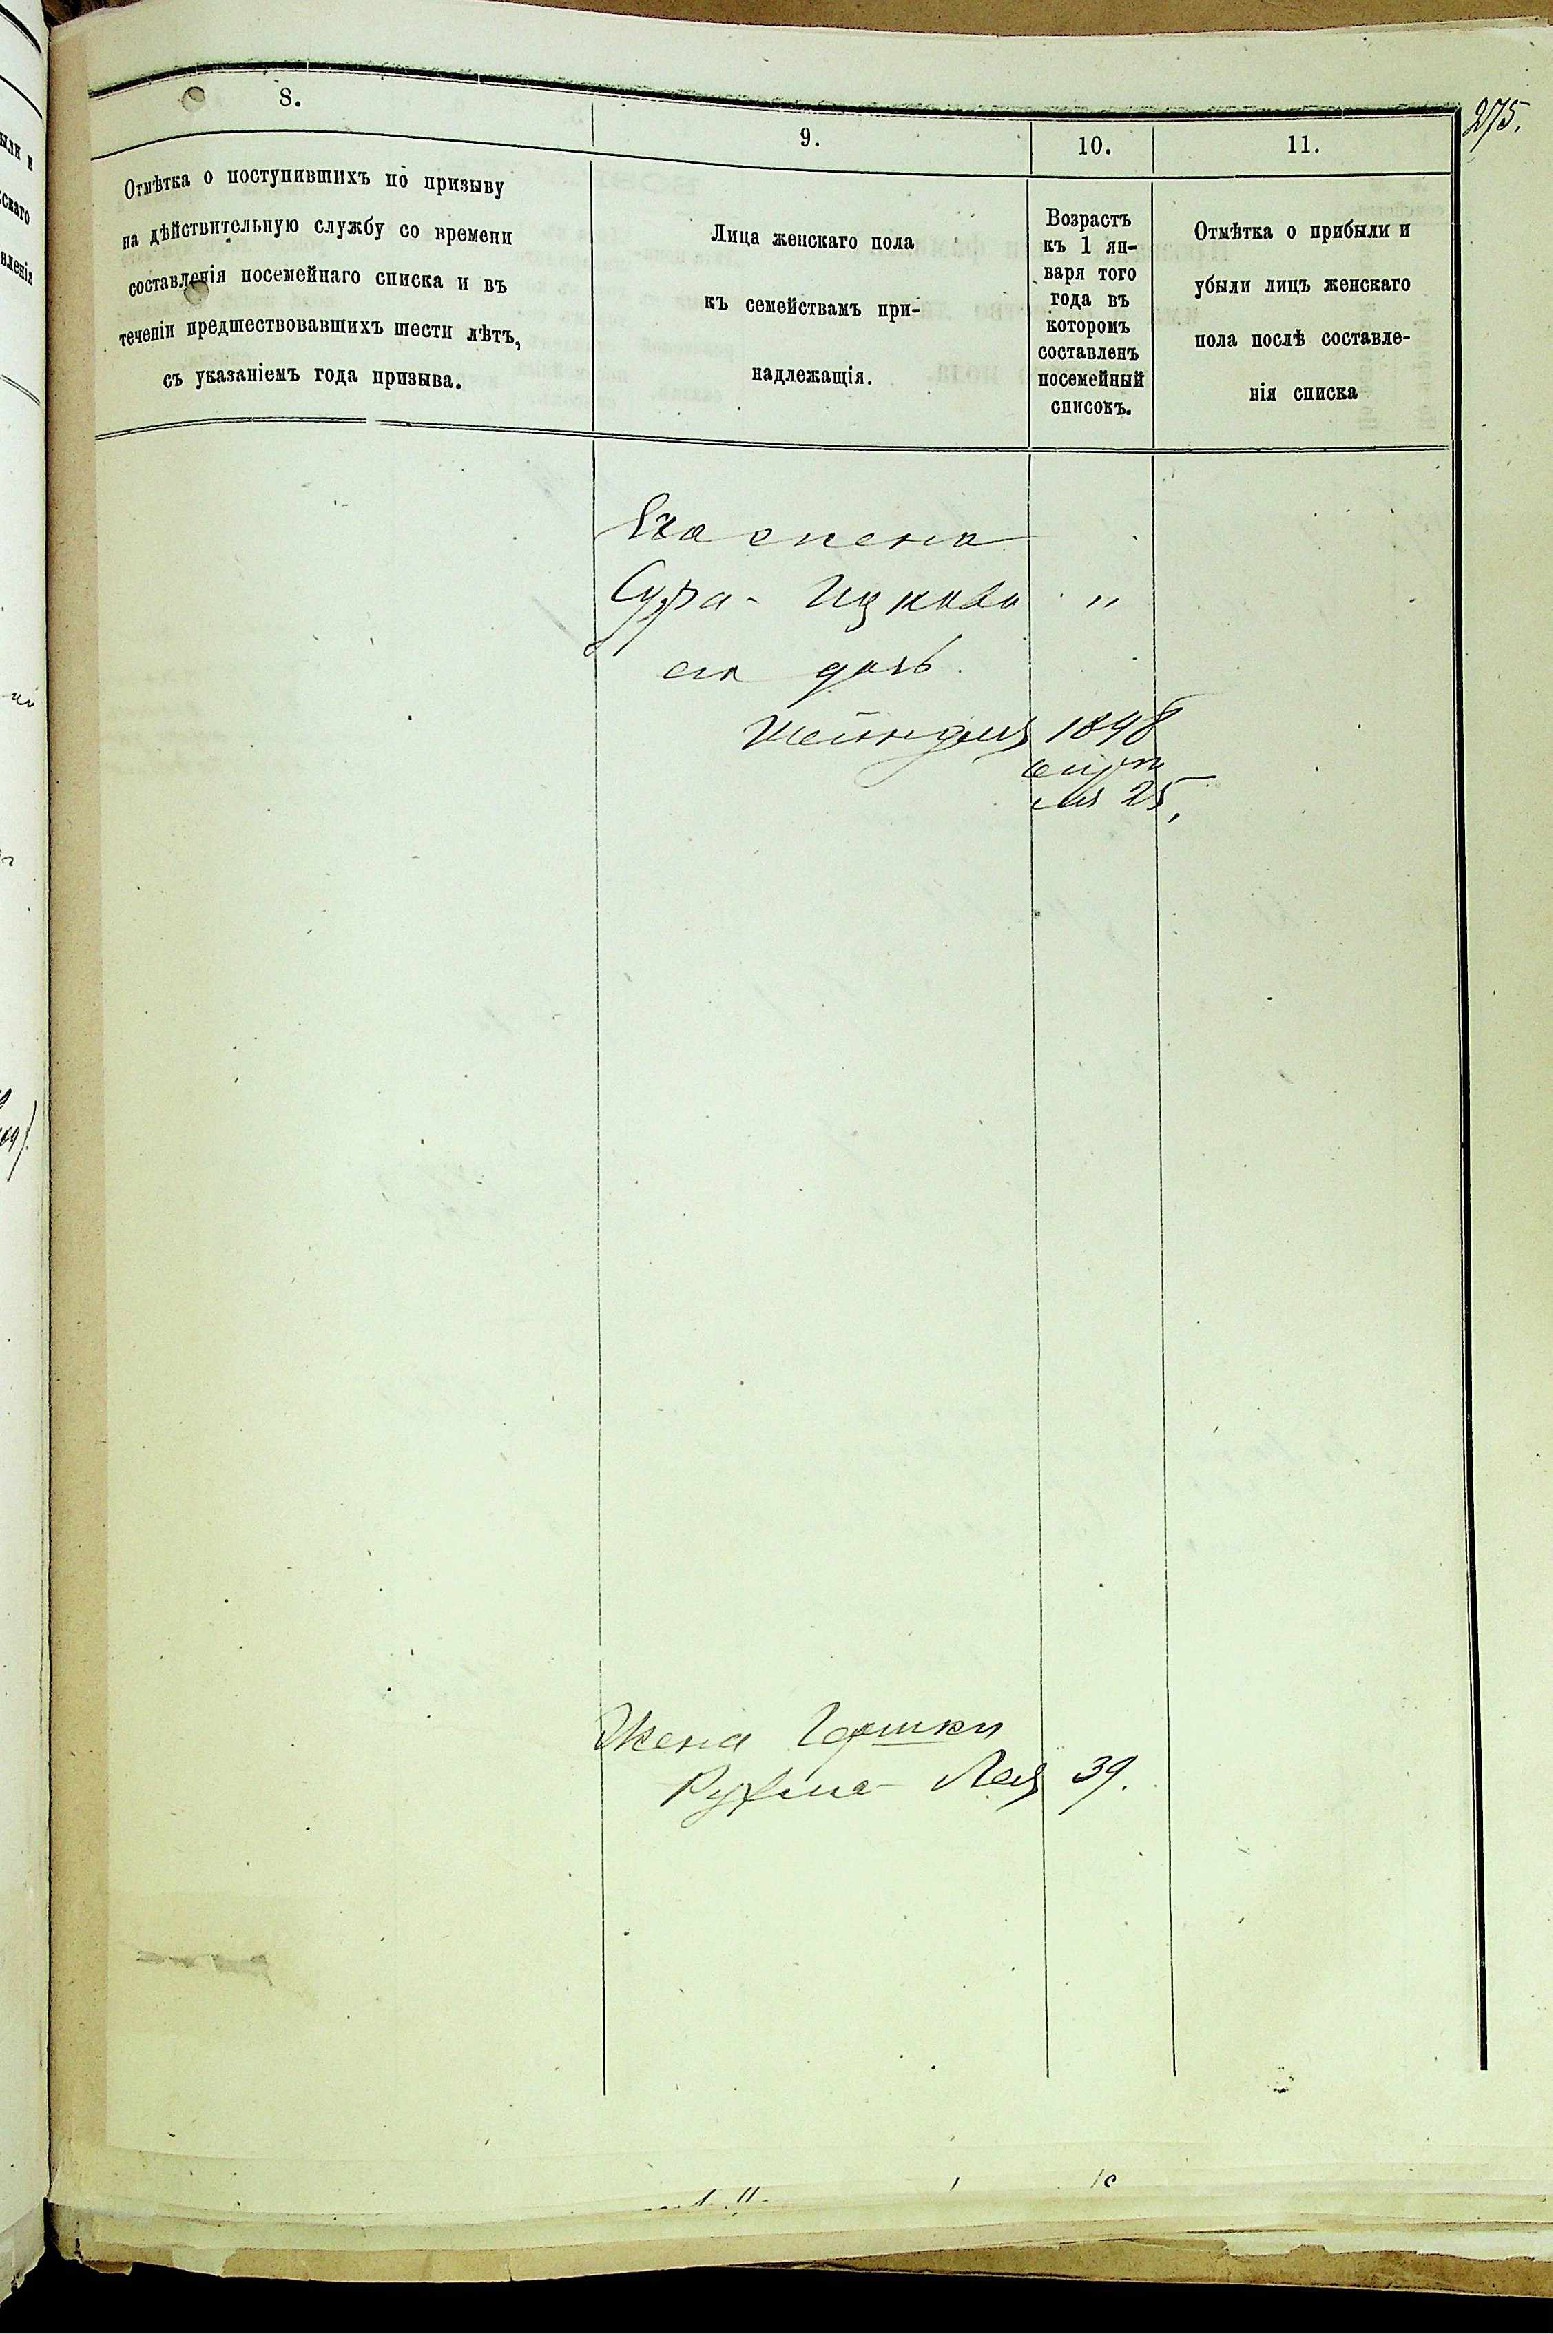 275.
8.
9.
10.
11.
Отмѣтка о поступившихъ по призыву
на дѣйствительную службу со времени
составленія посемейнаго списка и въ
теченіи предшествовавшихъ шести лѣтъ,
съ указаніемъ года призыва.
Лица женскаго пола
къ семействамъ при-
надлежащія.
Возрастъ
къ 1 ян-
варя того
года въ
которомъ
составленъ
посемейный
списокъ.
Отмѣтка о прибыли и
убыли лицъ женскаго
пола послѣ составле-
нія списка
Его жена
Сура - Ицкова "
ея дочь
Шейндля 1848
25.
Жена Гершки
Рухля - Лея 39.